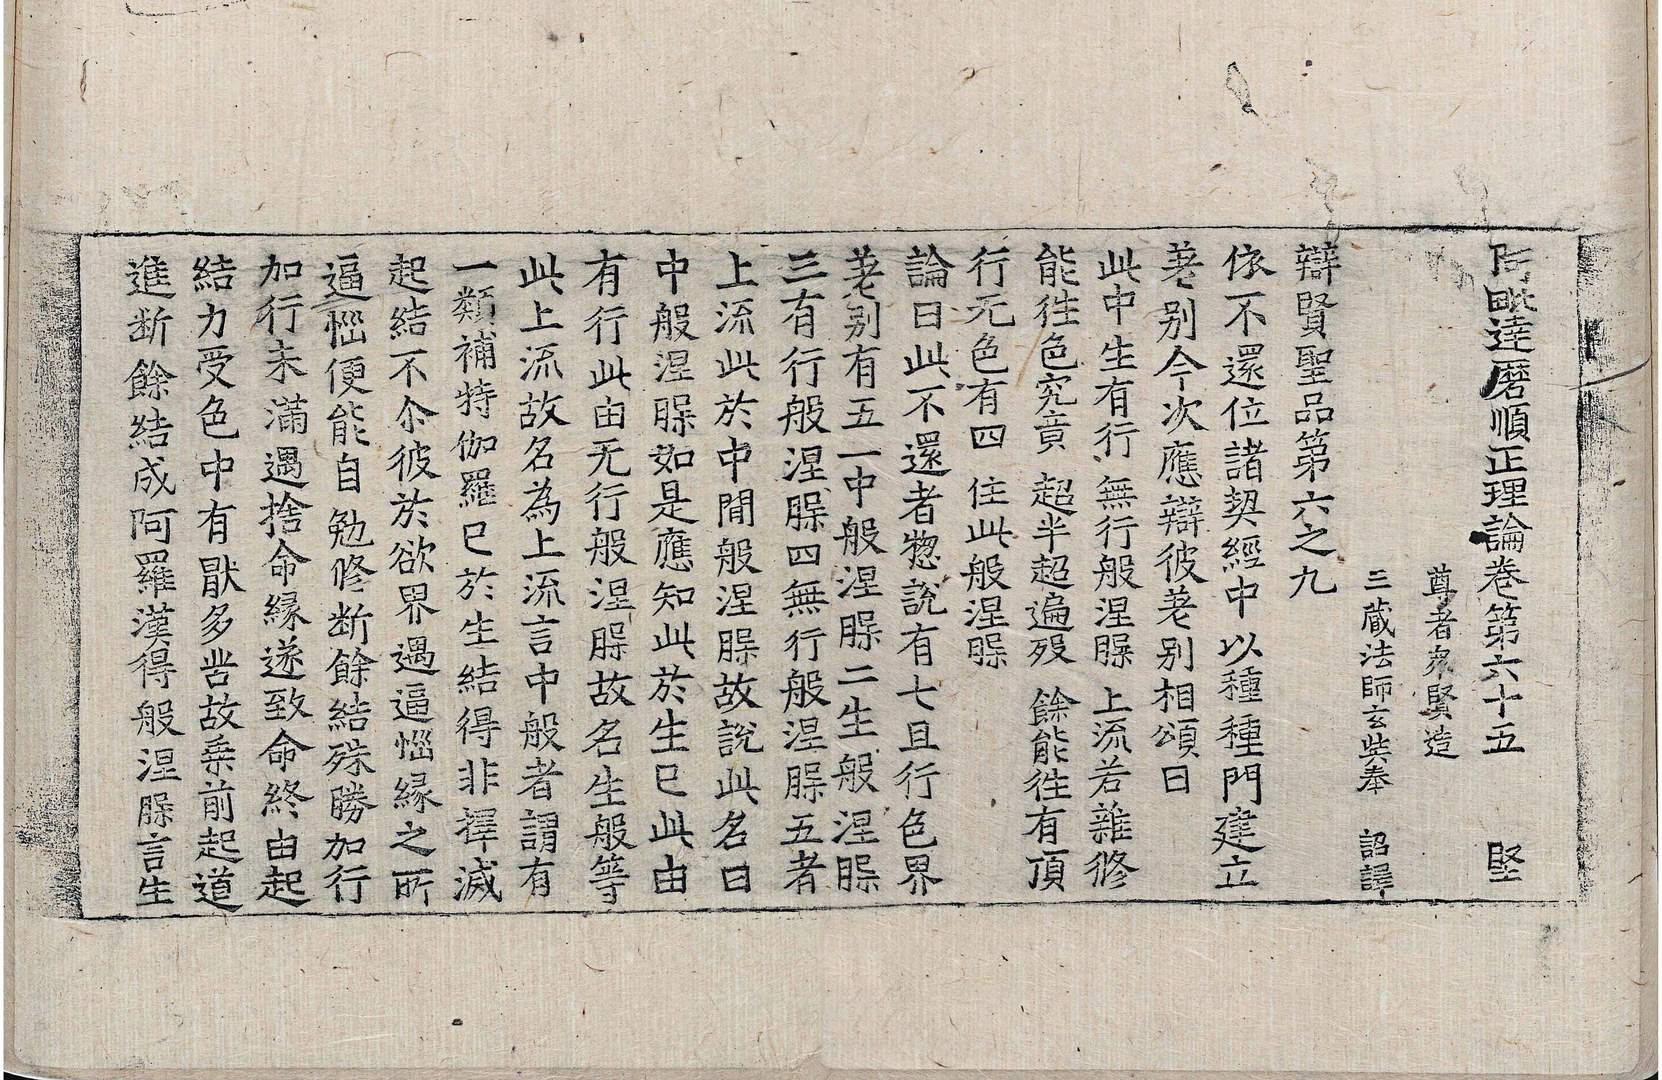 阿毗達磨順正理論卷第六十五 堅
尊者衆賢造
三蔵法師玄奘奉 詔譯
辯賢聖品第六之九
依不還位諸契經中以種種門建立
差别今次應辯彼差别相頌曰
此中生有行 無行般涅槃 上流若雜修
能徃色究竟 超半超遍殁 餘能徃有頂
行无色有四 住此般涅槃
論曰此不還者惣說有七且行色界
差别有五一中般涅槃二生般涅槃
三有行般涅槃四無行般涅槃五者
上流此於中間般涅槃故說此名曰
中般涅槃如是應知此於生已此由
有行此由无行般涅槃故名生般等
此上流故名為上流言中般者謂有
一類補特伽羅已於生結得非擇滅
起結不尒彼於欲界遇逼惱縁之所
逼惱便能自勉修断餘結殊勝加行
加行未滿遇捨命縁遂致命終由起
結力受色中有厭多苦故乗前起道
進断餘結成阿羅漢得般涅槃言生